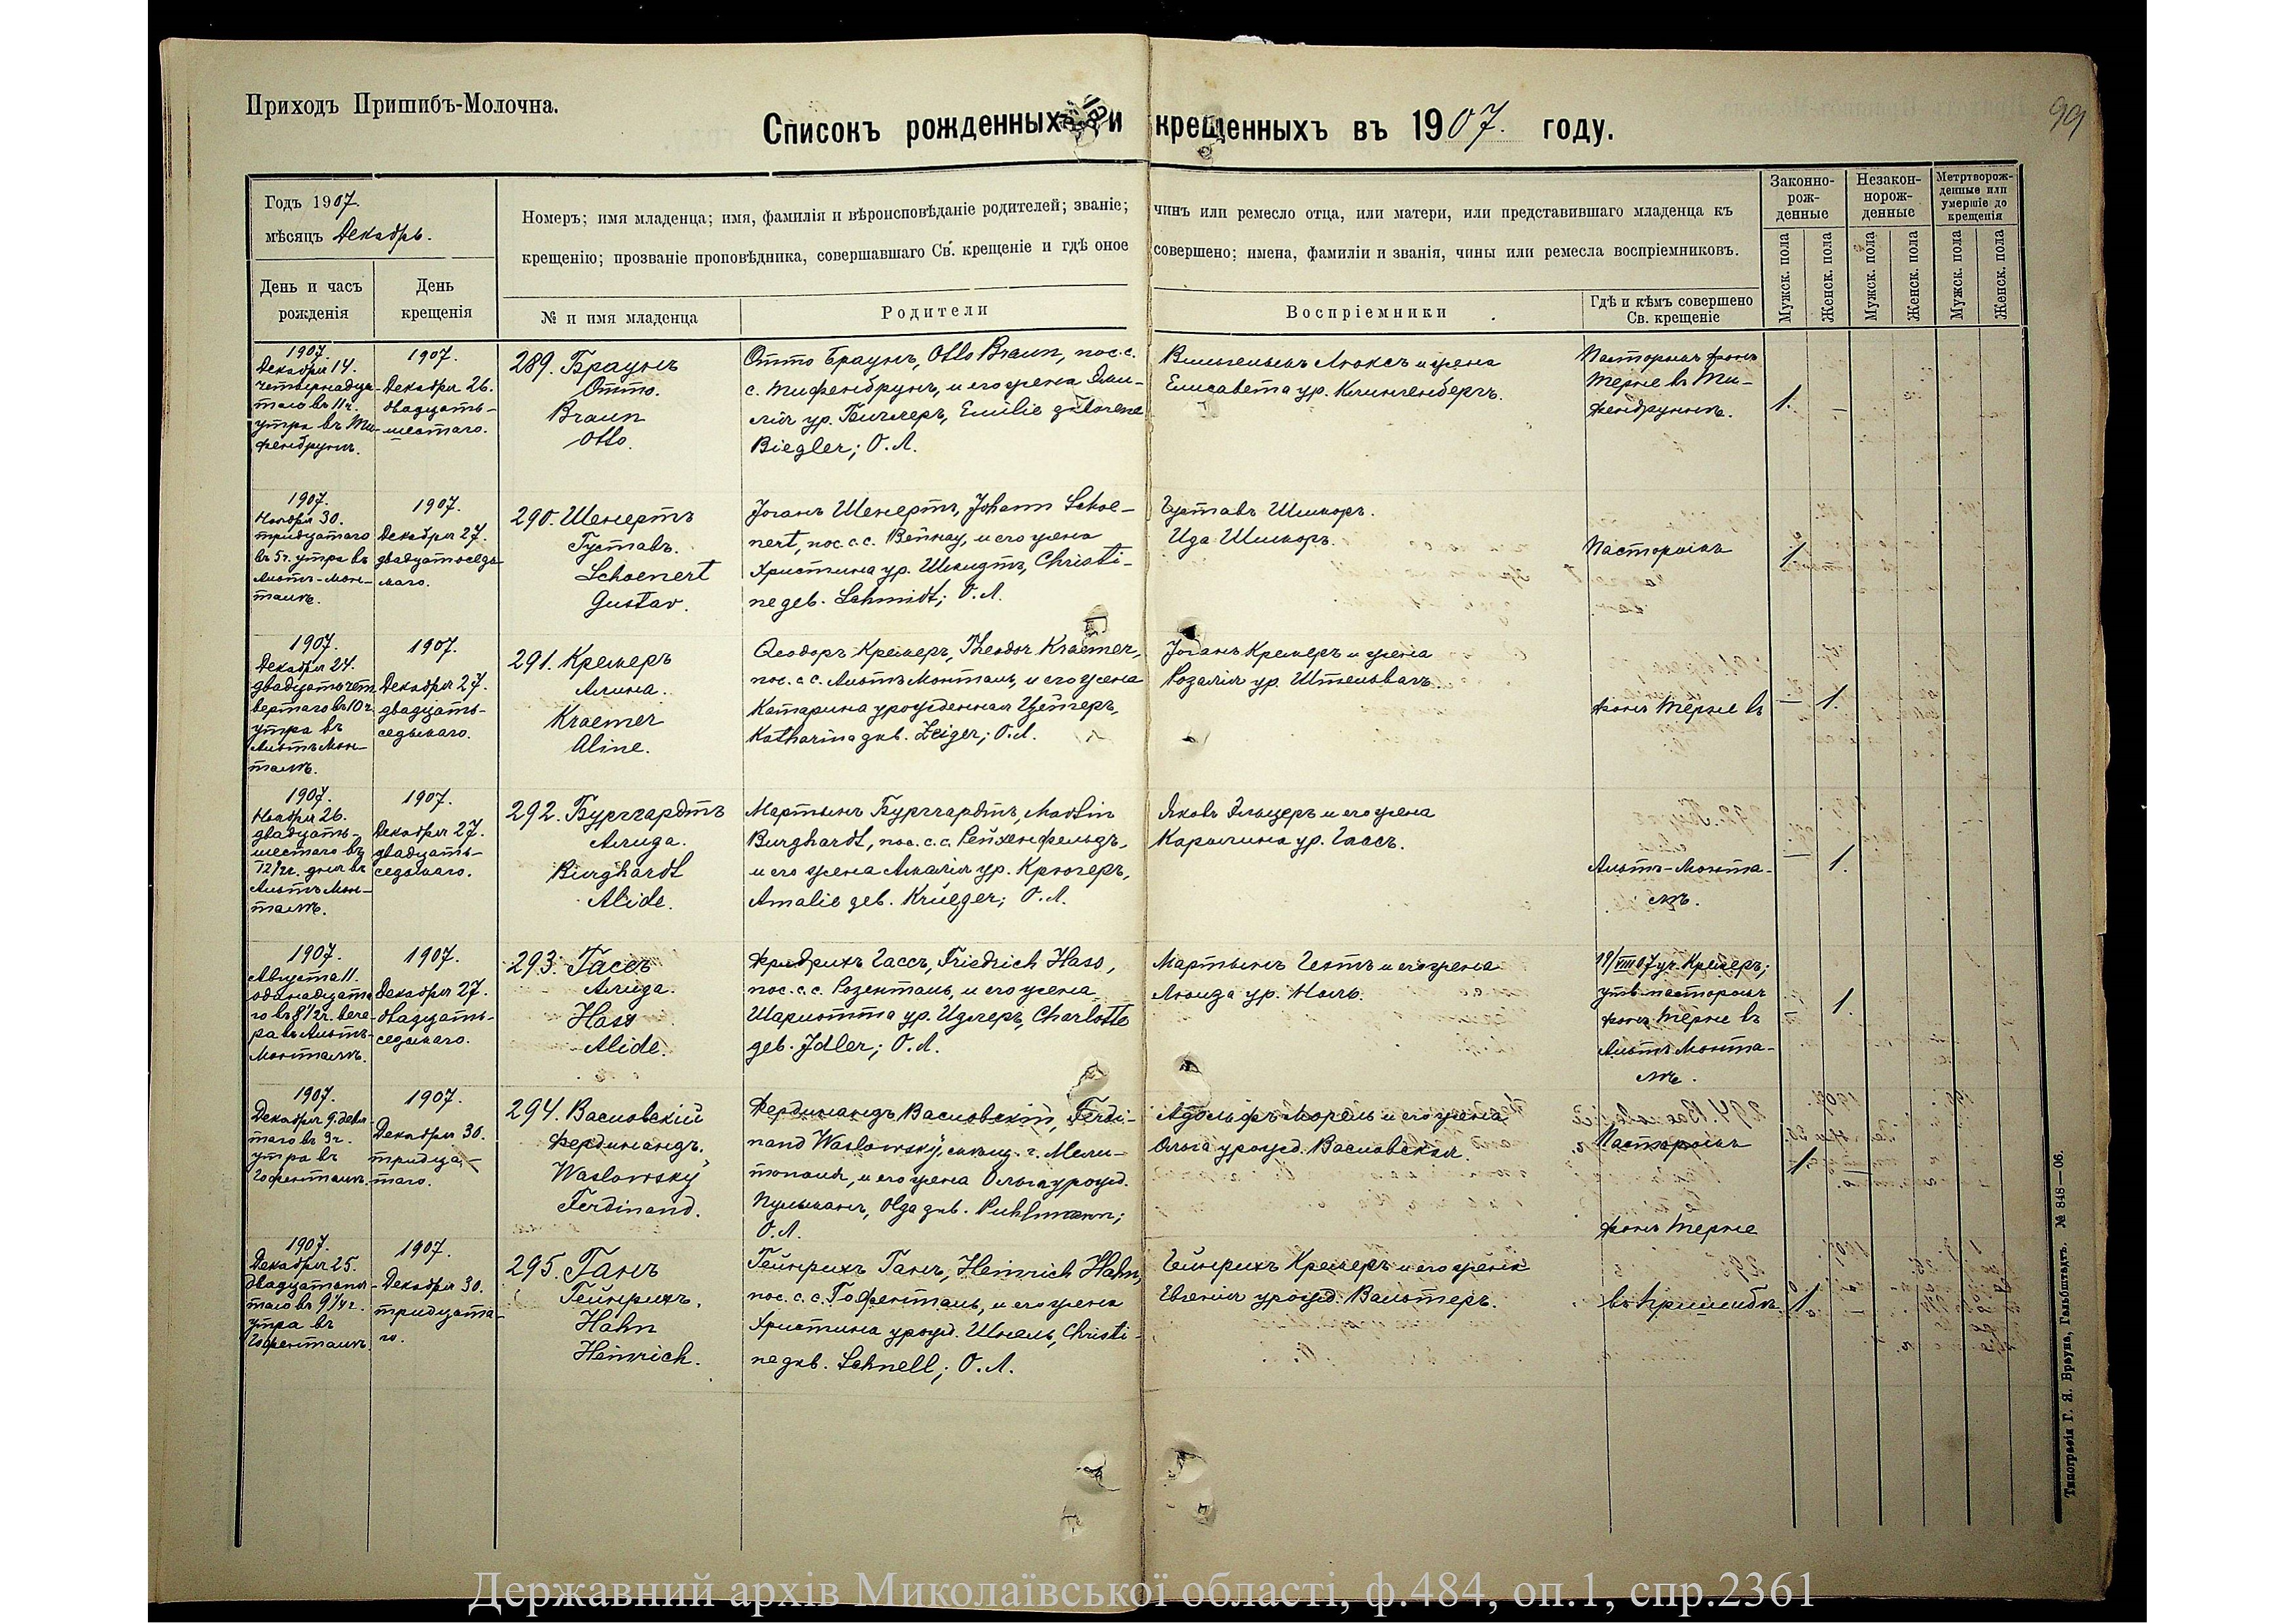 Приходъ Пришибъ-Молочна.
99
Списокъ рожденныхъ и крещенныхъ въ 1907. году.
Годъ 1907.
мѣсяцъ Декабрь.
Номеръ; имя младенца; имя, фамилія и вѣроисповѣданіе родителей; званіе; чинъ или ремесло отца, или матери, или представившаго младенца къ
крещенію; прозваніе проповѣдника, совершавшаго Св. крещеніе и гдѣ оное совершено; имена, фамиліи и званія, чины или ремесла воспріемниковъ.
Законно-
рож-
денные
Незакон-
норож-
денные
Метртворож-
денные или
умершіе до
крещенія
День и часъ
рожденія
День
крещенія
№ и имя младенца
Родители
Воспріемники
Гдѣ и кѣмъ совершено
Св. крещеніе
Мужск. пола
Женск. пола
Мужск. пола
Женск. пола
Мужск. пола
Женск. пола
1907.
Декабря 14.
четырнадца-
таго въ 11 ч.
утра въ Ти-
фенбрунъ.
1907.
Декабря 26.
двадцать-
шестаго.
289. Браунъ
Отто.
Braun
Otto.
Отто Браунъ, Otto Braun, пос. с.
с. Тифенбрунъ, и его жена Эми-
лія ур. Биглеръ, Emilie geborene
Biegler; О. Л.
Вильгельмъ Люксъ и жена
Елисавета ур. Клингенбергъ.
Пасторомъ фонъ
Терне въ Ти-
фенбруннѣ.
1. –
1907.
Ноября 30.
тридцатаго
въ 5 ч. утра въ
Альтъ-Мон-
талѣ.
1907.
Декабря 27.
двадцатьседь-
маго.
290. Шенертъ
Густавъ.
Schoenert
Gustav.
Іоганъ Шенертъ, Johann Schoe-
nert, пос. с. с. Вейнау, и его жена
Христина ур. Шмидтъ, Christi-
ne geb. Schmidt; О. Л.
Густавъ Шикоръ.
Ида Шикоръ.
Пасторомъ
1.
1907.
Декабря 24.
двадцатьчет-
вертаго въ 10 ч.
утра въ
Альтъ Мон-
талѣ.
1907.
Декабря 27.
двадцать-
седьмаго.
291. Кремеръ
Алина.
Kraemer
Aline.
Ѳеодоръ Кремеръ, Theodor Kraemer,
пос. с. с. Альтъ Монталь, и его жена
Катарина урожденная Цейгеръ,
Katharina geb. Zeiger; О. Л.
Іоганъ Кремеръ и жена
Розалія ур. Штельвагъ.
фонъ Терне въ
– 1.
1907.
Ноября 26.
двадцать-
шестаго въ
12½ ч. дня въ
Альтъ Мон-
талѣ.
1907.
Декабря 27.
двадцать-
седьмаго.
292. Бурггардтъ
Алида.
Burghardt
Alide.
Мартынъ Бурггардтъ, Martin
Burghardt, пос. с. с. Рейхенфельдъ,
и его жена Амалія ур. Крюгеръ,
Amalie geb. Krüeger; О. Л.
Яковъ Эльцеръ и его жена
Каролина ур. Гаасъ.
Альтъ-Монта-
лѣ.
– 1.
1907.
Августа 11.
одинадцата-
го въ 8½ ч. вече-
ра въ Альтъ-
Монталѣ.
1907.
Декабря 27.
двадцать-
седьмаго.
293. Гассъ
Алида.
Hass
Alide.
Фридрихъ Гассъ, Friedrich Hass,
пос. с. с. Розенталь, и его жена
Шарлотта ур. Идлеръ, Charlotte
geb. Idler; О. Л.
Мартынъ Гектъ и его жена
Луиза ур. Ноль.
19/VIII 07 уч. Кремеръ;
утв. пасторомъ
фонъ Терне въ
Альтъ Монта-
лѣ.
– 1.
1907.
Декабря 9. девя-
таго въ 3 ч.
утра въ
Гофенталѣ.
1907.
Декабря 30.
тридца-
таго.
294. Васловскій
Фердинандъ.
Waslowsky
Ferdinand.
Фердинандъ Васловскій, Ferdi-
nand Waslowsky, г. Мели-
тополя, и его жена Ольга урожд.
Пульманъ, Olga geb. Puhlmann;
О. Л.
Адольфъ Морель и его жена
Ольга урожд. Васловская.
Пасторомъ
фонъ Терне
1.
1907.
Декабря 25.
двадцатьпя-
таго въ 9¼ ч.
утра въ
Гофенталѣ.
1907.
Декабря 30.
тридцата-
го.
295. Ганъ
Гейнрихъ.
Hahn
Heinrich.
Гейнрихъ Ганъ, Heinrich Hahn,
пос. с. с. Гофенталь, и его жена
Христина урожд. Шнель, Christi-
ne geb. Schnell; О. Л.
Гейнрихъ Кремеръ и его жена
Евгенія урожд. Вальтеръ.
въ Пришибѣ.
1.
Типографія Г. Я. Брауна, Гальбштадтъ. № 848—06.
Державний архів Миколаївської області, ф.484, оп.1, спр.2361